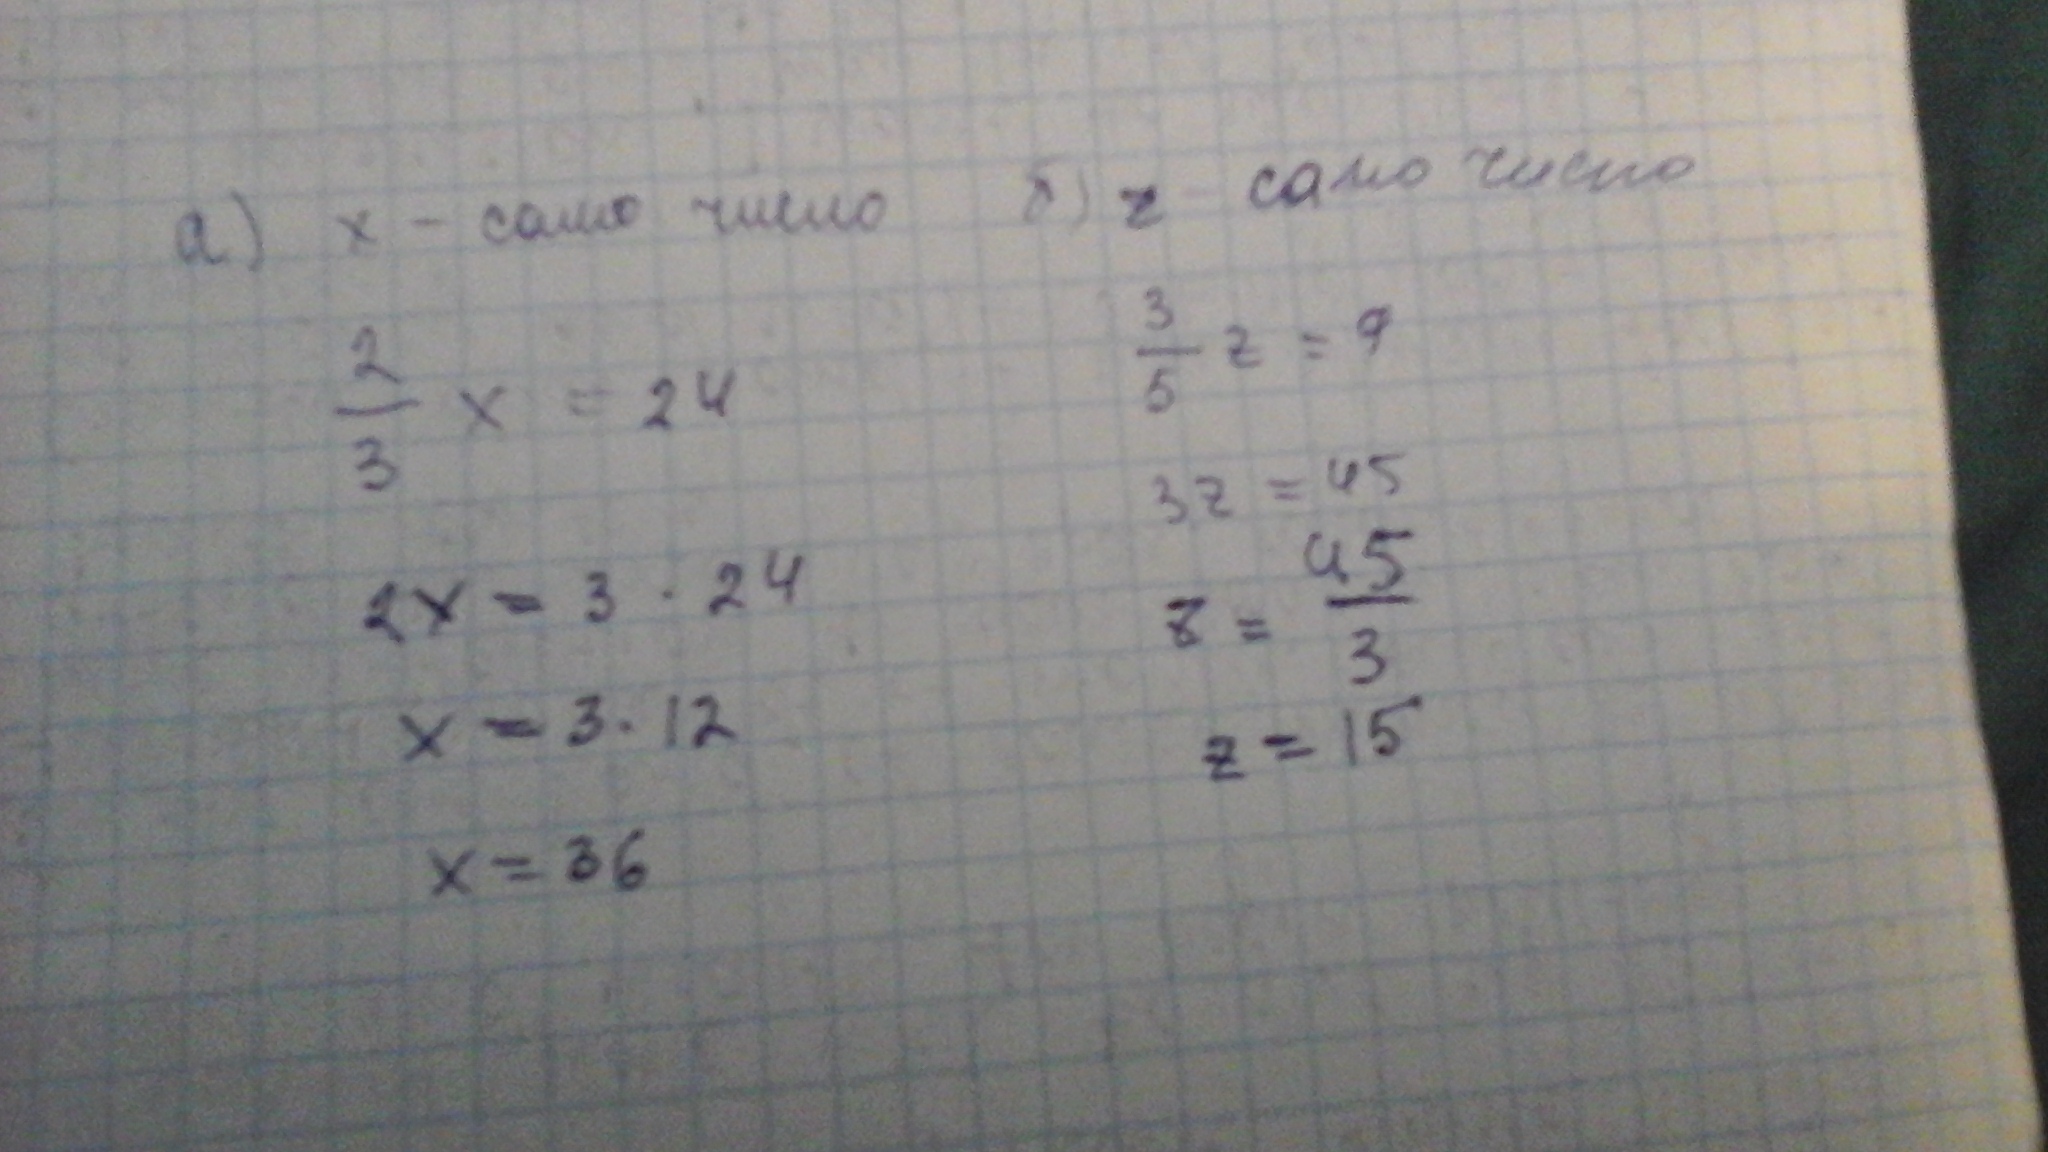 а) x - само число
2/3 x = 24
2x = 3 · 24
x = 3 · 12
x = 36
б) z - само число
3/5 z = 9
3z = 45
z = 45/3
z = 15